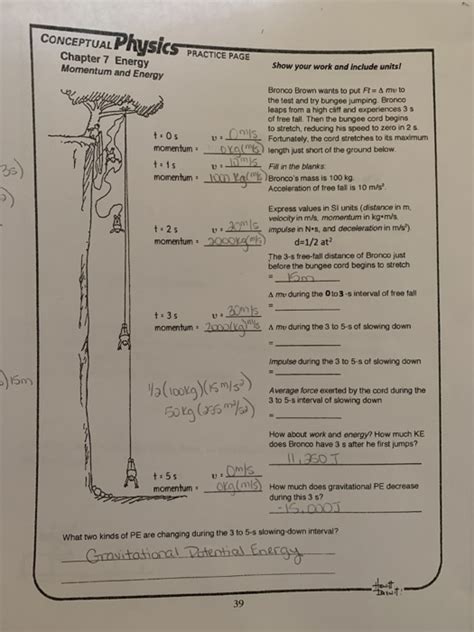 CONCEPTUAL Physics PRACTICE PAGE
Chapter 7 Energy
Momentum and Energy
Show your work and include units!
Bronco Brown wants to put Ft = Δ mv to
the test and try bungee jumping. Bronco
leaps from a high cliff and experiences 3 s
of free fall. Then the bungee cord begins
to stretch, reducing his speed to zero in 2 s.
Fortunately, the cord stretches to its maximum
length just short of the ground below.
t = 0 s v = 0 m/s
momentum = 0 kg(m/s)
t = 1 s v = 10 m/s
momentum = 1000 kg(m/s)
Fill in the blanks:
Bronco's mass is 100 kg.
Acceleration of free fall is 10 m/s².
Express values in SI units (distance in m,
velocity in m/s, momentum in kg•m/s,
impulse in N•s, and deceleration in m/s²)
d=1/2 at²
t = 2 s v = 20m/s
momentum = 2000kg(m/s)
The 3-s free-fall distance of Bronco just
before the bungee cord begins to stretch
= 15m
Δ mv during the 0 to 3 -s interval of free fall
=
t = 3 s v = 30m/s
momentum =
Δ mv during the 3 to 5-s of slowing down
=
Impulse during the 3 to 5-s of slowing down
=
)15m
1/2(100kg)(15m/s²)
Average force exerted by the cord during the
3 to 5-s interval of slowing down
=
How about work and energy? How much KE
does Bronco have 3 s after he first jumps?
11,250 J
t = 5 s v = 0m/s
momentum = 0kg(m/s)
How much does gravitational PE decrease
during this 3 s?
-15,000J
What two kinds of PE are changing during the 3 to 5-s slowing-down interval?
Gravitational Potential Energy
39